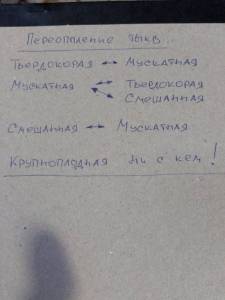 Переопыление тыкв...
Твердокорая ↔ Мускатная
Мускатная ↔ Твердокорая
Смешанная
Смешанная ↔ Мускатная
Крупноплодная ни с кем!